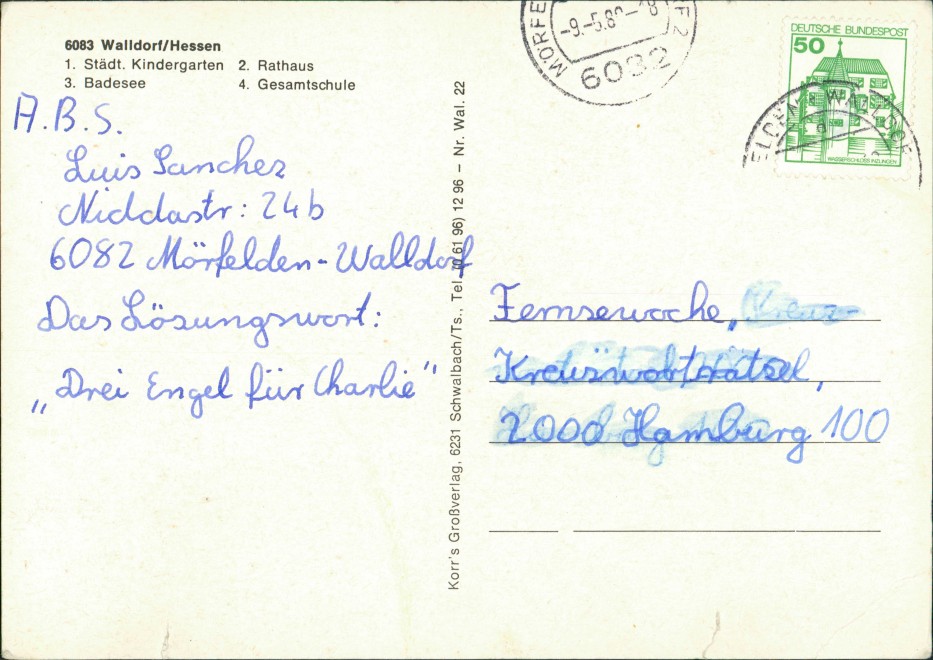 6083 Walldorf/Hessen
1. Städt. Kindergarten 2. Rathaus
3. Badesee 4. Gesamtschule
A.B.S.
Luis Sanchez
Niddastr: 24b
6082 Mörfelden-Walldorf
Das Lösungswort:
„Drei Engel für Charlie"
Korr's Großverlag, 6231 Schwalbach/Ts., Tel. (0 61 96) 12 96 – Nr. Wal. 22
-9.-5.8
6082
DEUTSCHE BUNDESPOST
50
WASSERSCHLOSS INZLINGEN
Fernsewoche „
Kreuzwortträtsel,
2000 Hamburg 100